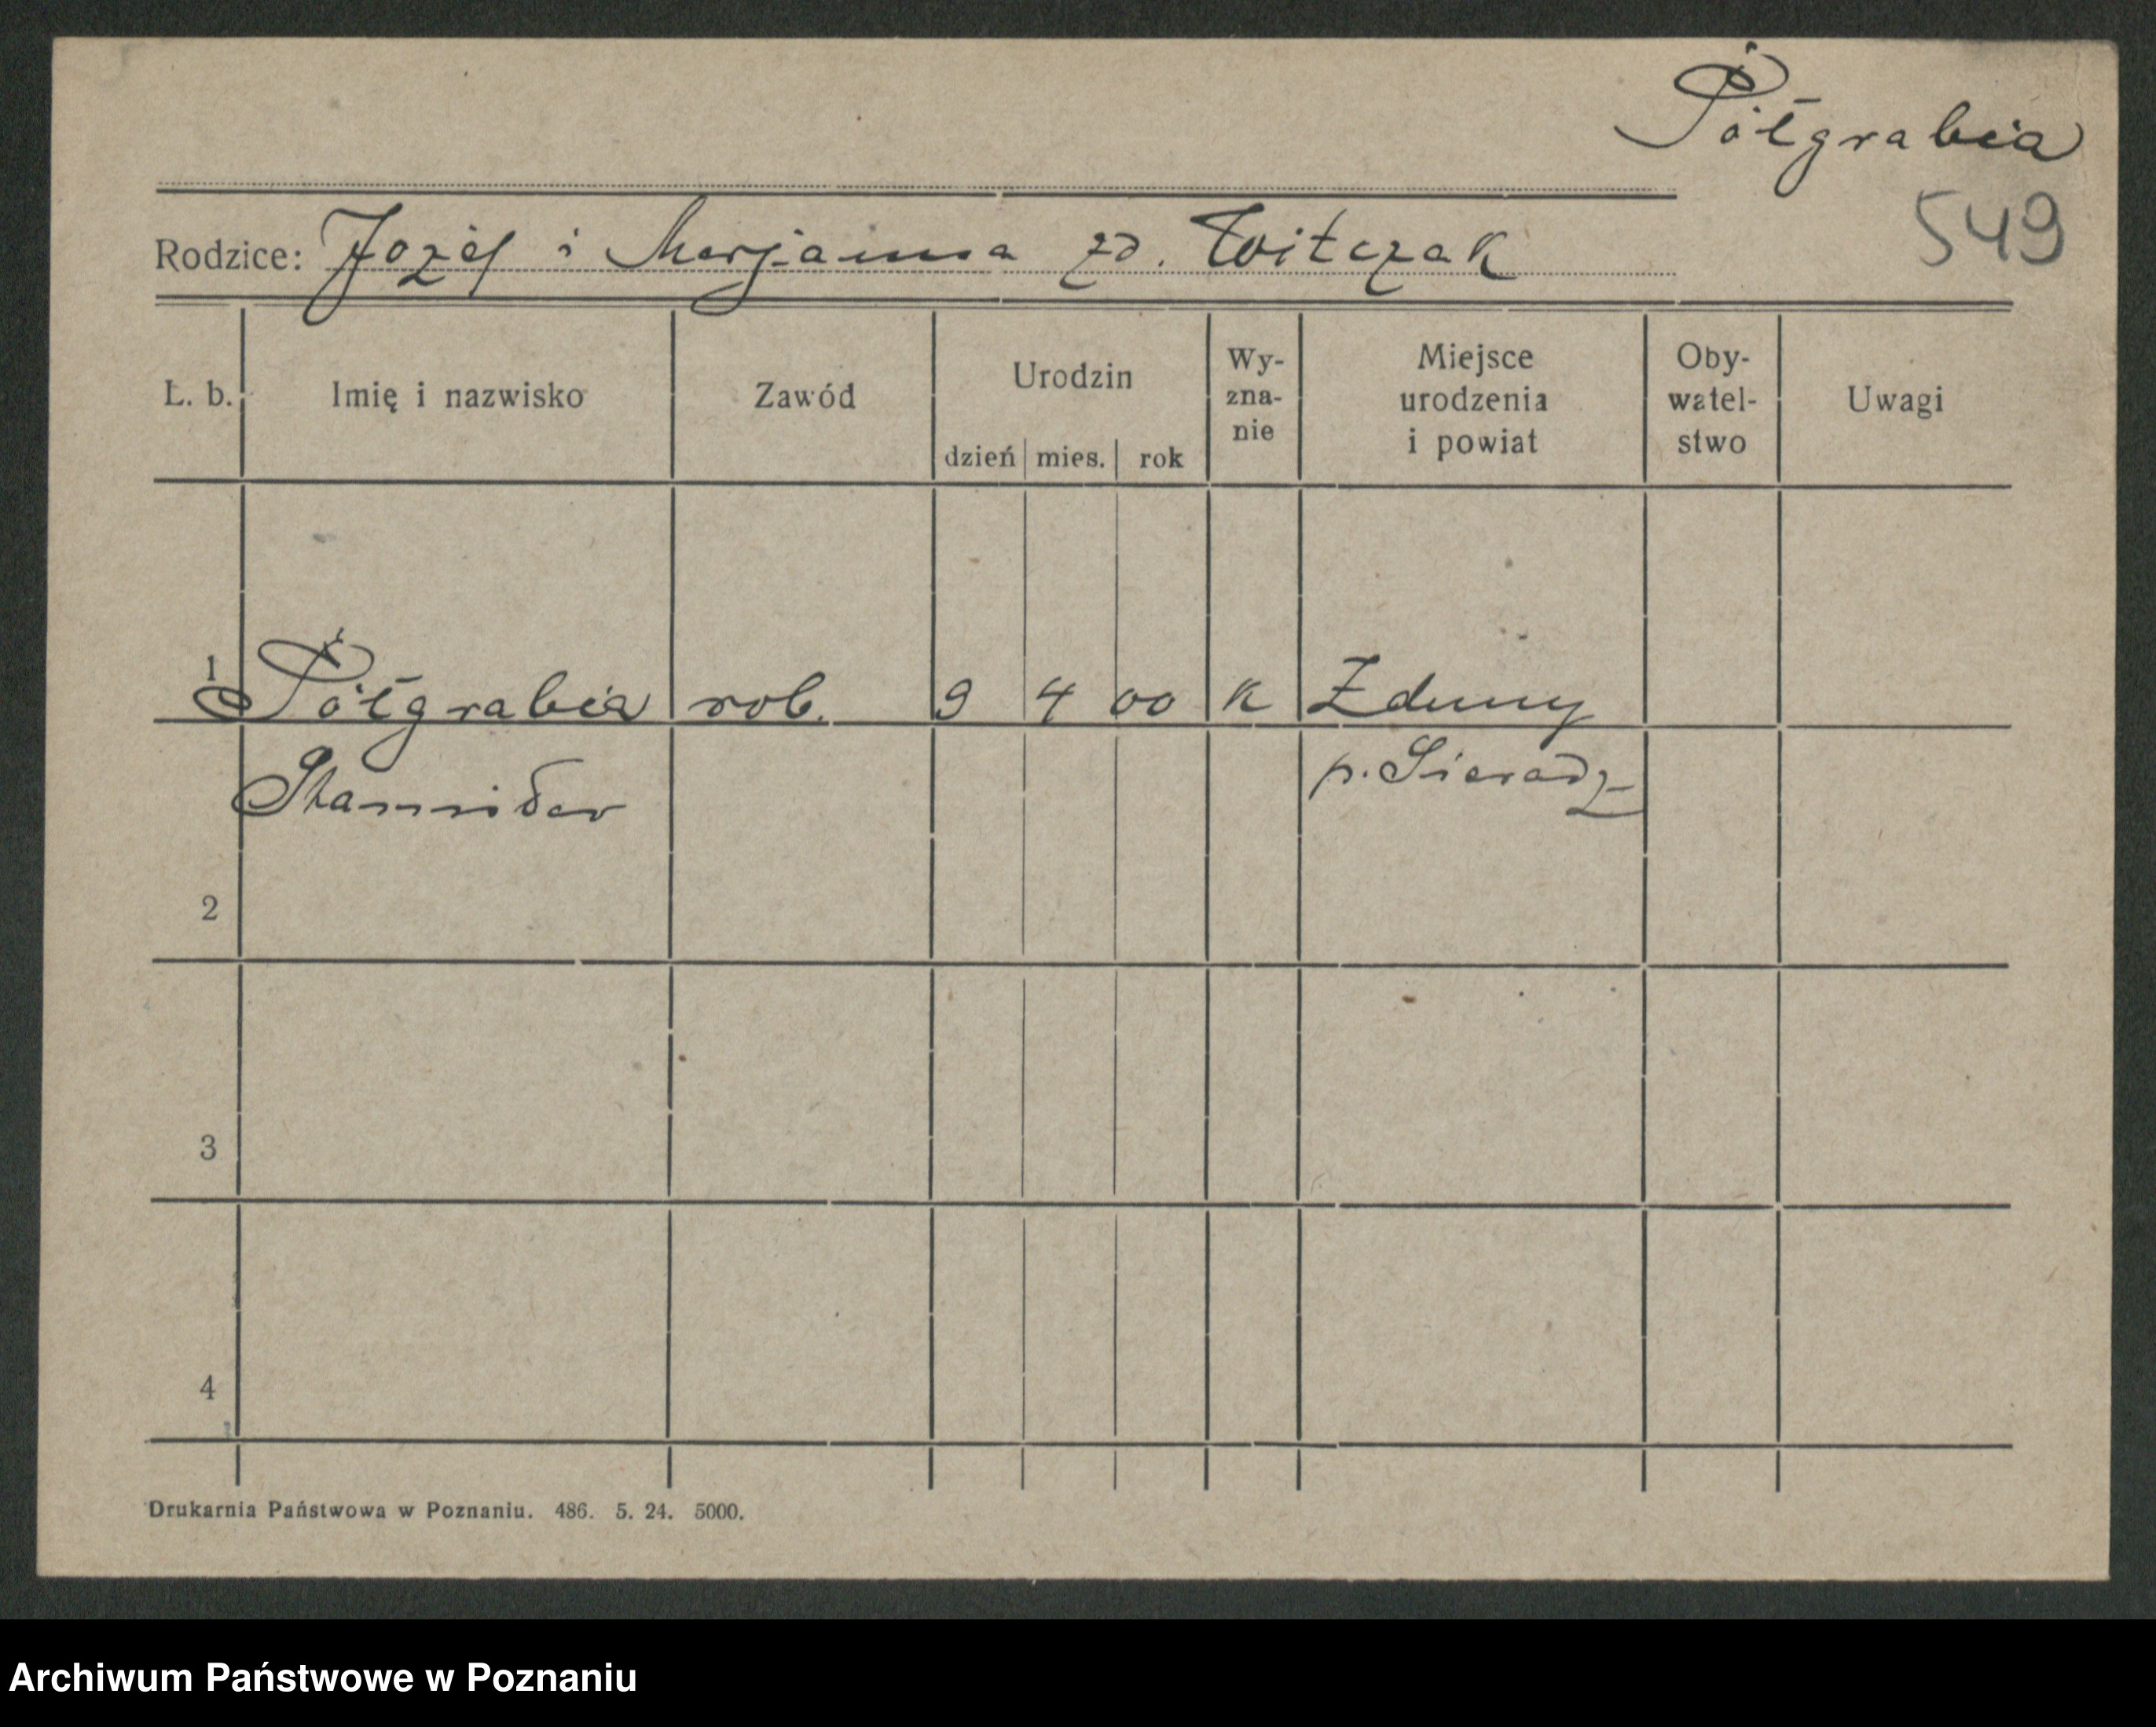 Półgrabia
549
Rodzice: Józef i Marjanna zd. Witczak
L. b. Imię i nazwisko Zawód Urodzin dzień mies. rok Wy-zna-nie Miejsce urodzenia i powiat Oby-watel-stwo Uwagi
1 Półgrabia rob. 9 4 00 K Zduny
Stanisław p. Sieradz
2
3
4
Drukarnia Państwowa w Poznaniu. 486. 5. 24. 5000.
Archiwum Państwowe w Poznaniu